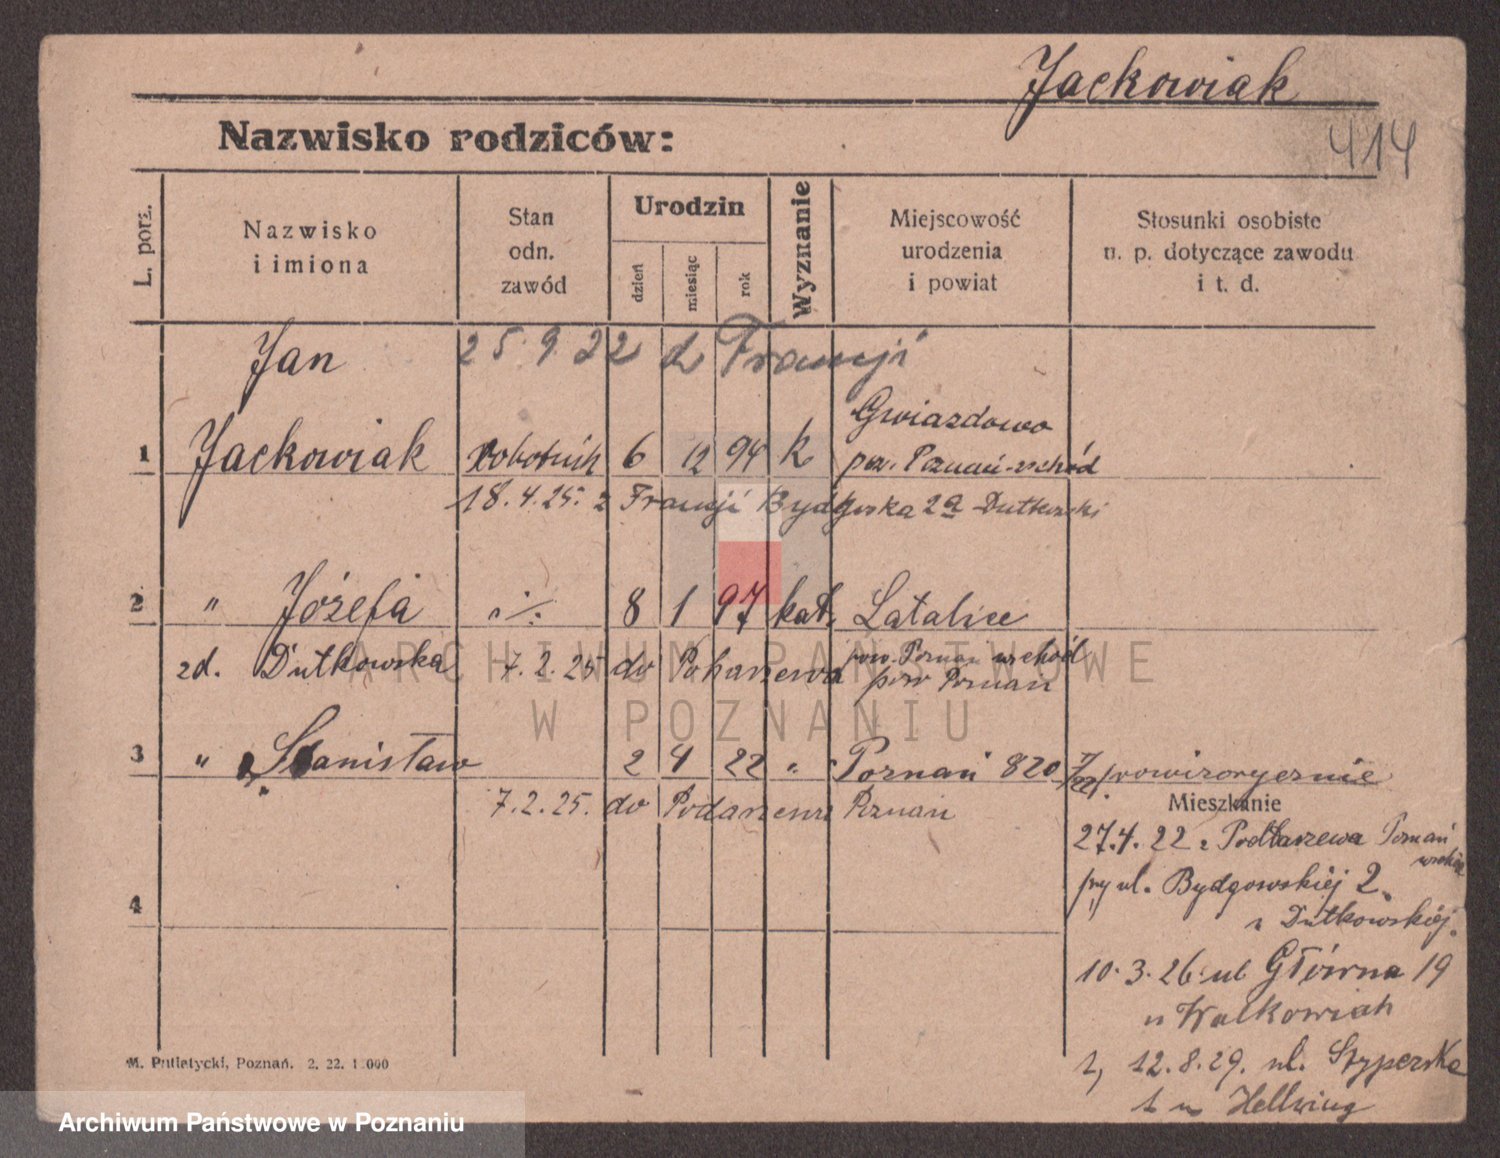 Jackowiak
Nazwisko rodziców:
414
L. porz.
Nazwisko i imiona
Stan odn. zawód
Urodzin
dzień
miesiąc
rok
Wyznanie
Miejscowość urodzenia i powiat
Stosunki osobiste n. p. dotyczące zawodu i t. d.
Jan 25.9.22 d Francji
Gwiazdowo
1 Jackowiak robotnik 6 12 94 k pow. Poznań-wschód
18.4.25. z Francji Bydgoska 2a Dutkowski
2 " Józefa ·/· 8 1 97 kat. Latalice
zd. Dutkowska 7.2.25 do pow. Poznań wschód
pow Poznań
ARCHIWUM PAŃSTWOWE
W POZNANIU
3 " Stanisław 2 4 22 " Poznań 820 prowizorycznie
7.2.25. do Poznań
Mieszkanie
27.4.22 z Poznań
przy ul. Bydgowskiéj 2
u Dutkowskiéj.
4
10.3.26 ul Główna 19
u Walkowiak
1, 12.8.29. ul.
1 u Hellwing
M. Putiatycki, Poznań. 2. 22. 1 000
Archiwum Państwowe w Poznaniu